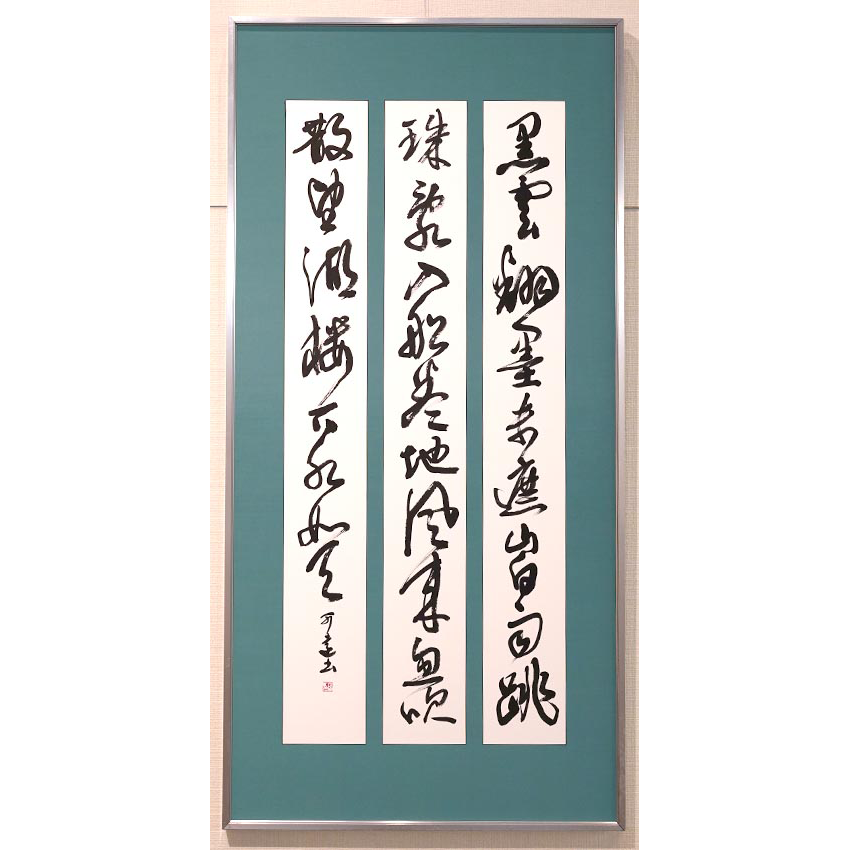 黒雲翻墨未遮山白雨跳
珠乱入船巻地風来忽吹
散望湖楼下水如天
書